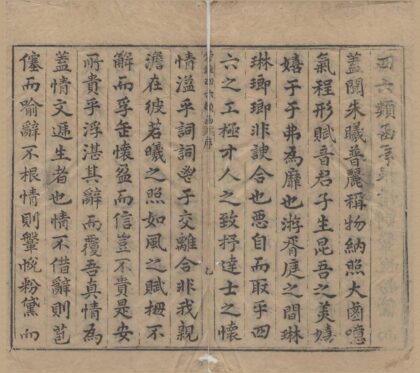 四六類函序
蓋聞朱曦普麗稱物納照大鹵噫
氣程形賦音君子生昆吾之美嬉
嬉于于弗為靡也游胥庭之間琳
琳瑯瑯非諛合也惡自而取乎四
六之工極才人之致抒達士之懷
情溢乎詞詞善于交離合非我親
澹在彼若曦之照如風之賦拇不
解而孚缶懷盆而信豈不貴是安
所貴乎浮湛其辭而覆吾真情為
蓋情文遞生者也情不借辭則苞
僿而喻辭不根情則鞶帨粉黛而